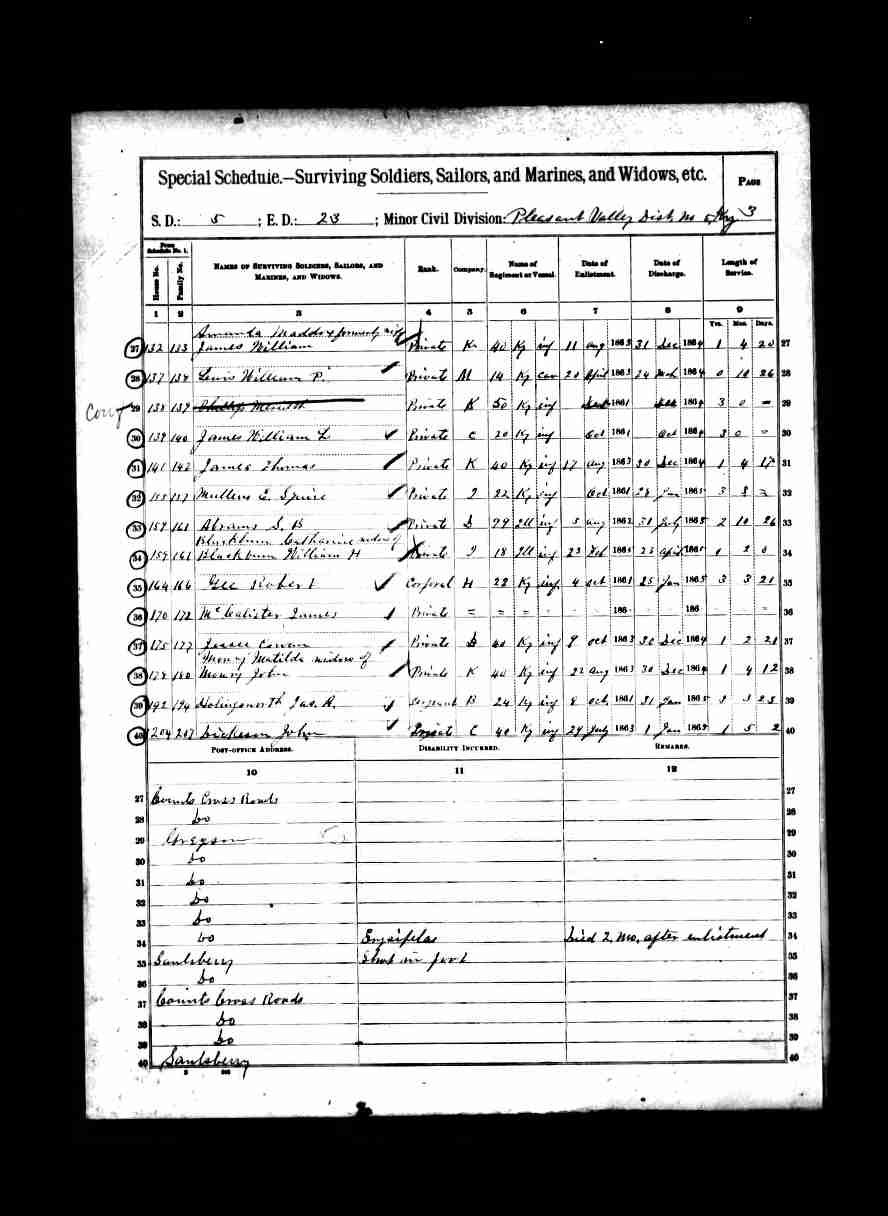 Special Schedule.—Surviving Soldiers, Sailors, and Marines, and Widows, etc.
PAGE 3
S. D.: 5 ; E. D.: 23 ; Minor Civil Division: Pleasant Valley Dist
From Schedule No. 1.
House No. Family No. NAMES OF SURVIVING SOLDIERS, SAILORS, AND MARINES, AND WIDOWS. Rank. Company. Name of Regiment or Vessel. Date of Enlistment. Date of Discharge. Length of Service.
1 2 3 4 5 6 7 8 9
Yrs. Mos. Days.
Amanda Maddox formerly wife
27 132 133 James William Private K 40 Ky inf 11 Aug 1863 31 Dec 1864 1 4 20 27
28 137 138 Lewis William P. Private M 14 Ky cav 20 April 1863 24 Mch 1864 0 10 26 28
Conf 29 138 139 Phillip Meredith Private K 50 Ky inf 1861 1864 3 0 = 29
30 139 140 James William L Private C 20 Ky inf Oct 1861 Oct 1864 3 0 = 30
31 141 142 James Thomas Private K 40 Ky inf 17 Aug 1863 30 Dec 1864 1 4 31
32 157 Mullens E. Squire Private I 22 Ky inf Oct 1861 28 Jan 1865 3 3 = 32
33 159 161 Abrams S. B Private D Ill inf 5 Aug 1862 31 July 1865 2 10 26 33
Blackburn Catharine widow of
34 159 161 Blackburn William H Private I 18 Ill inf 23 Feb 1865 23 April 1865 0 2 0 34
35 164 166 Gee Robert Corporal H 22 Ky inf. 4 oct 1861 25 Jan 1865 3 3 21 35
36 170 172 McCalister James Private = = = 186 186 36
37 175 177 Jesse Cowen Private D 40 Ky inf 9 oct 1863 30 Dec 1864 1 2 21 37
Moury Matilda widow of
38 178 180 Moury John Private K 40 Ky inf 22 Aug 1863 30 Dec 1864 1 4 12 38
39 192 194 Holingsworth Jas. R. Sergeant B 24 Ky inf 8 oct 1861 31 Jan 1865 3 3 23 39
40 204 207 Dickeson John Privat C 40 Ky inf 29 July 1863 1 Jan 1865 1 5 2 40
POST-OFFICE ADDRESS. DISABILITY INCURRED. REMARKS.
10 11 12
27 Counts Cross Roads 27
28 Do 28
29 Grayson 29
30 Do 30
31 Do 31
32 Do 32
33 Do 33
34 Do Erysipelas Died 2. Mo. after enlistment 34
35 Saulsberry Shot in foot 35
36 Do 36
37 Counts Cross Roads 37
38 Do 38
39 Do 39
40 Saulsberry 40